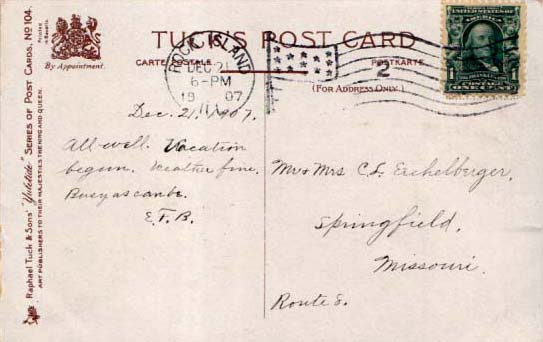 TUCK'S POST CARD
CARTE POSTALE
POSTKARTE
(FOR ADDRESS ONLY.)
By Appointment.
Raphael Tuck & Sons' "Yuletide" SERIES OF POST CARDS, No 104.
ART PUBLISHERS TO THEIR MAJESTIES THE KING AND QUEEN.
Printed in Saxony.
ROCK ISLAND
DEC 21
6-PM
1907
ILL.
2
UNITED STATES OF AMERICA
1 1
POSTAGE
ONE CENT
Dec. 21, 1907.
All well. Vacation
begun. Weather fine.
Busy as can be.
E.F.B.
Mr & Mrs C.L. Eichelberger,
Springfield,
Missouri.
Route 8.